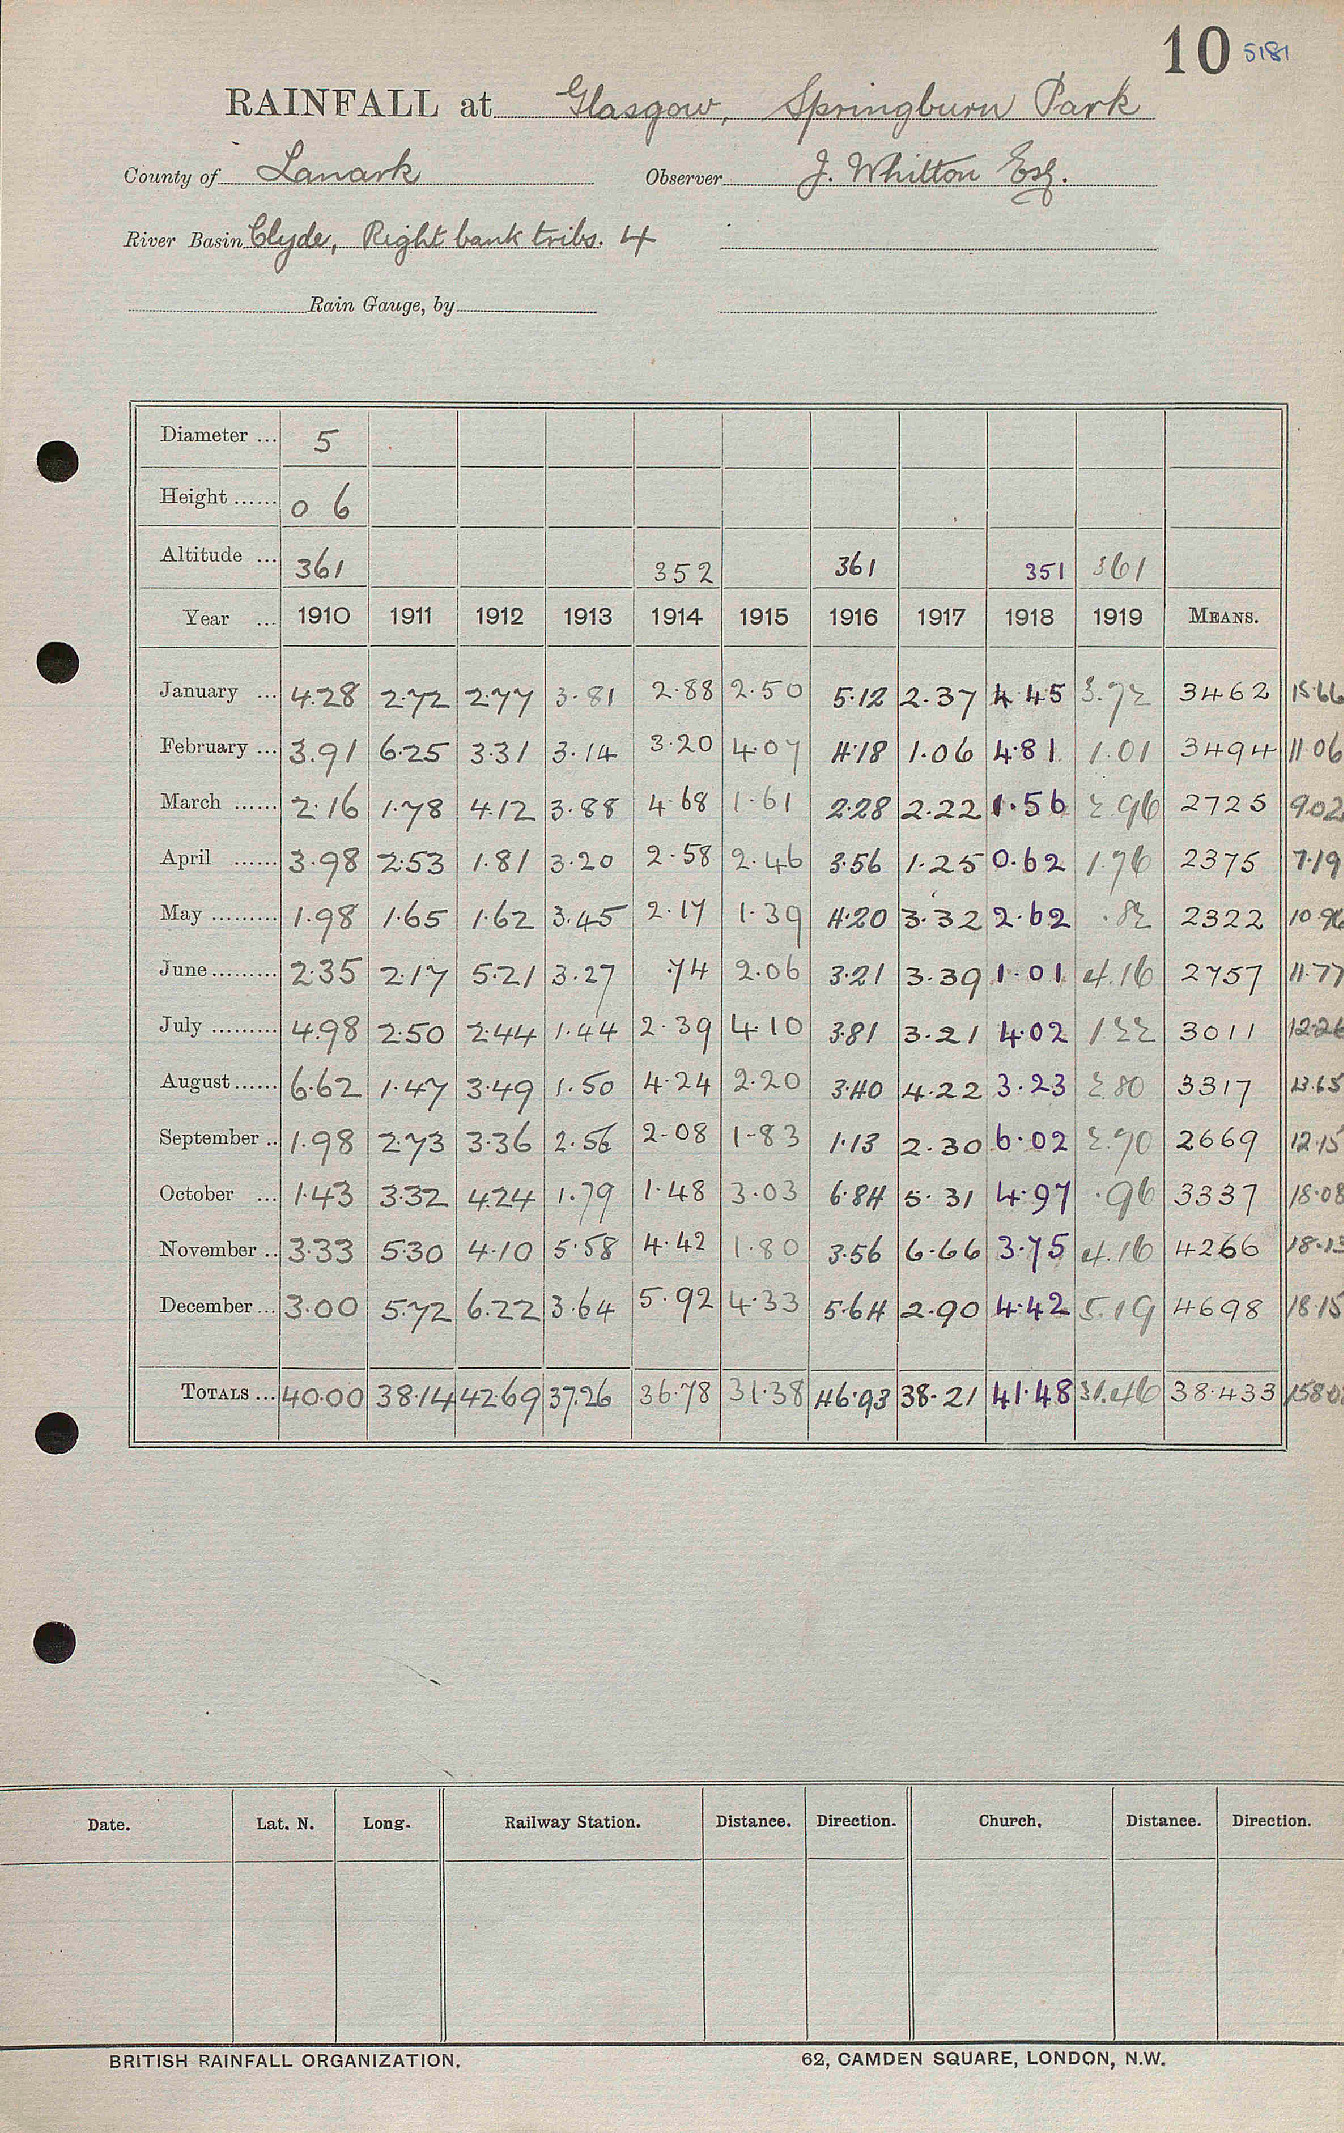 10 5181
RAINFALL at Glasgow, Springburn Park
County of Lanark Observer J. Whitton Esq.
River Basin Clyde, Right bank tribs. 4
Rain Gauge, by
Diameter ... 5
Height ...... 0 6
Altitude ... 361 352 361 351 361
Year ... 1910 1911 1912 1913 1914 1915 1916 1917 1918 1919 MEANS.
January ... 4.28 2.72 2.77 3.81 2.88 2.50 5.12 2.37 4.45 3.72 3462 15.66
February ... 3.91 6.25 3.31 3.14 3.20 4.07 4.18 1.06 4.81 1.01 3494 11.06
March ...... 2.16 1.78 4.12 3.88 4.68 1.61 2.28 2.22 1.56 2.96 2725 9.02
April ...... 3.98 2.53 1.81 3.20 2.58 2.46 3.56 1.25 0.62 1.76 2375 7.19
May .......... 1.98 1.65 1.62 3.45 2.17 1.39 4.20 3.32 2.62 .82 2322 10.96
June .......... 2.35 2.17 5.21 3.27 .74 2.06 3.21 3.39 1.01 4.16 2757 11.77
July .......... 4.98 2.50 2.44 1.44 2.39 4.10 3.81 3.21 4.02 1.22 3011 12.26
August ...... 6.62 1.47 3.49 1.50 4.24 2.20 3.40 4.22 3.23 2.80 3317 13.65
September .. 1.98 2.73 3.36 2.56 2.08 1.83 1.13 2.30 6.02 2.70 2669 12.15
October ... 1.43 3.32 4.24 1.79 1.48 3.03 6.84 5.31 4.97 .96 3337 18.08
November .. 3.33 5.30 4.10 5.58 4.42 1.80 3.56 6.66 3.75 4.16 4266 18.13
December ... 3.00 5.72 6.22 3.64 5.92 4.33 5.64 2.90 4.42 5.19 4698 18.15
TOTALS ... 40.00 38.14 42.69 37.26 36.78 31.38 46.93 38.21 41.48 31.46 38.433
Date. Lat. N. Long. Railway Station. Distance. Direction. Church. Distance. Direction.
BRITISH RAINFALL ORGANIZATION. 62, CAMDEN SQUARE, LONDON, N.W.